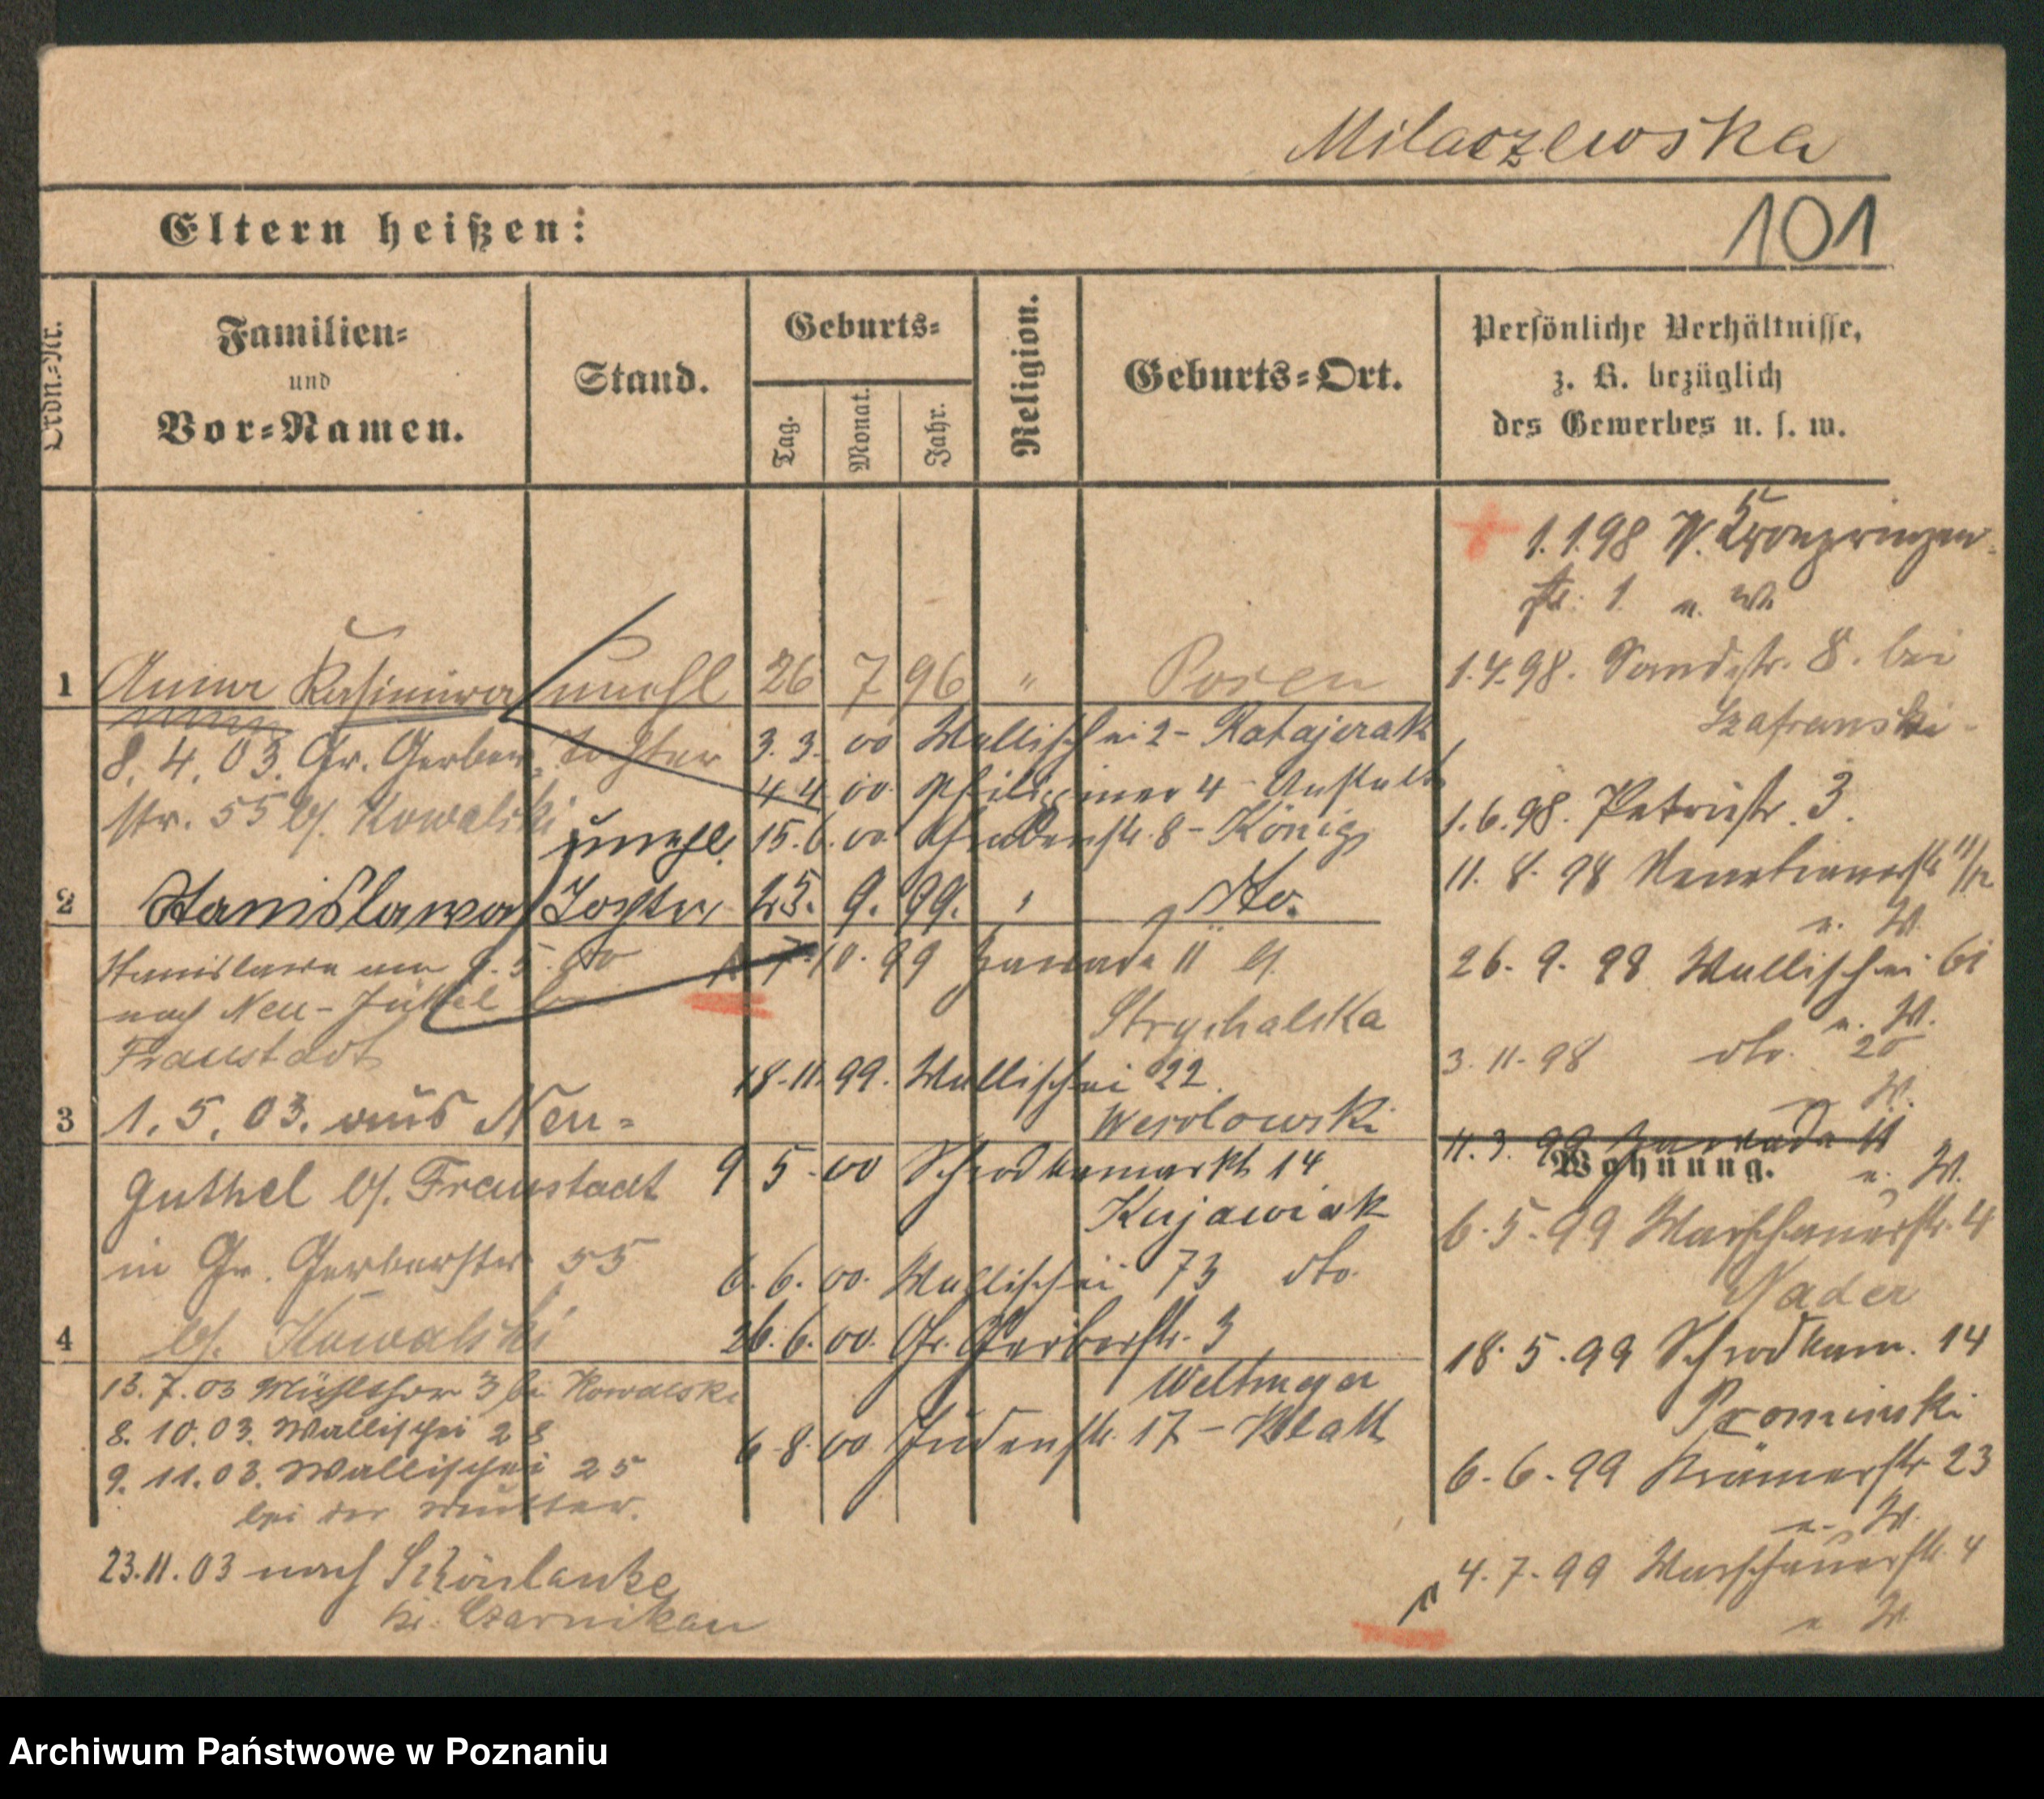 Milaczewska
Eltern heißen:
101
Ordn.-Nr.
Familien-
und
Vor-Namen.
Stand.
Geburts-
Tag.
Monat.
Jahr.
Religion.
Geburts-Ort.
Persönliche Verhältnisse,
z. B. bezüglich
des Gewerbes u. s. w.
1 Anna Kasimira unehl 26 7 96 " Posen
8. 4. 03. Gr. Gerber-
str. 55 b/. Kowalski
Tochter
unehl.
2 Stanislawa Tochter 25. 9. 99. " dto.
Stanislawa am 9. 5. 00
nach Neu-
Fraustadt
3 1. 5. 03. aus Neu-
Guthel b/. Fraustadt
in Gr. Gerberstr. 55
4 b/. Kowalski
13. 7. 03 Mühlthor 3 bei Kowalski
8. 10. 03. Wallischei 28
9. 11. 03. Wallischei 25
bei der Mutter.
23. 11. 03 nach Schönlanke
Kr. Czarnikau
3. 3. 00 Wallischei 2 - Ratajczak
4 4 00 4 - Anstalt
15. 6. 00 8 - König
7. 10. 99 Zawade 11 b/.
Strychalska
18. 11. 99. Wallischei 22.
Weselowski
9 5 - 00 Schrodkamarkt 14
Kujawiak
6. 6. 00. Wallischei 73 dto.
26. 6. 00. Gr. Gerberstr. 3
Weltmeyer
6 - 8. 00 Judenstr. 17 - Platt
1. 1. 98 N. Kronprinzen-
str. 1. u. W.
1. 4. 98. Sandstr. 8. bei
Szafranski
1. 6. 98. Petristr. 3.
11. 8. 98 Venetianerstr 11/12
u. W.
26. 9. 98 Wallischei 61
u. W.
3. 11. 98 dto. 20
W.
11. 3. 99 Zawade 11
Wohnung.
u. W.
6. 5. 99 Warschauerstr. 4
Nader
18. 5. 99 Schrodkam. 14
Prominski
6. 6. 99 Krämerstr. 23
u. W.
4. 7. 99 Warschauerstr. 4
u W.
Archiwum Państwowe w Poznaniu